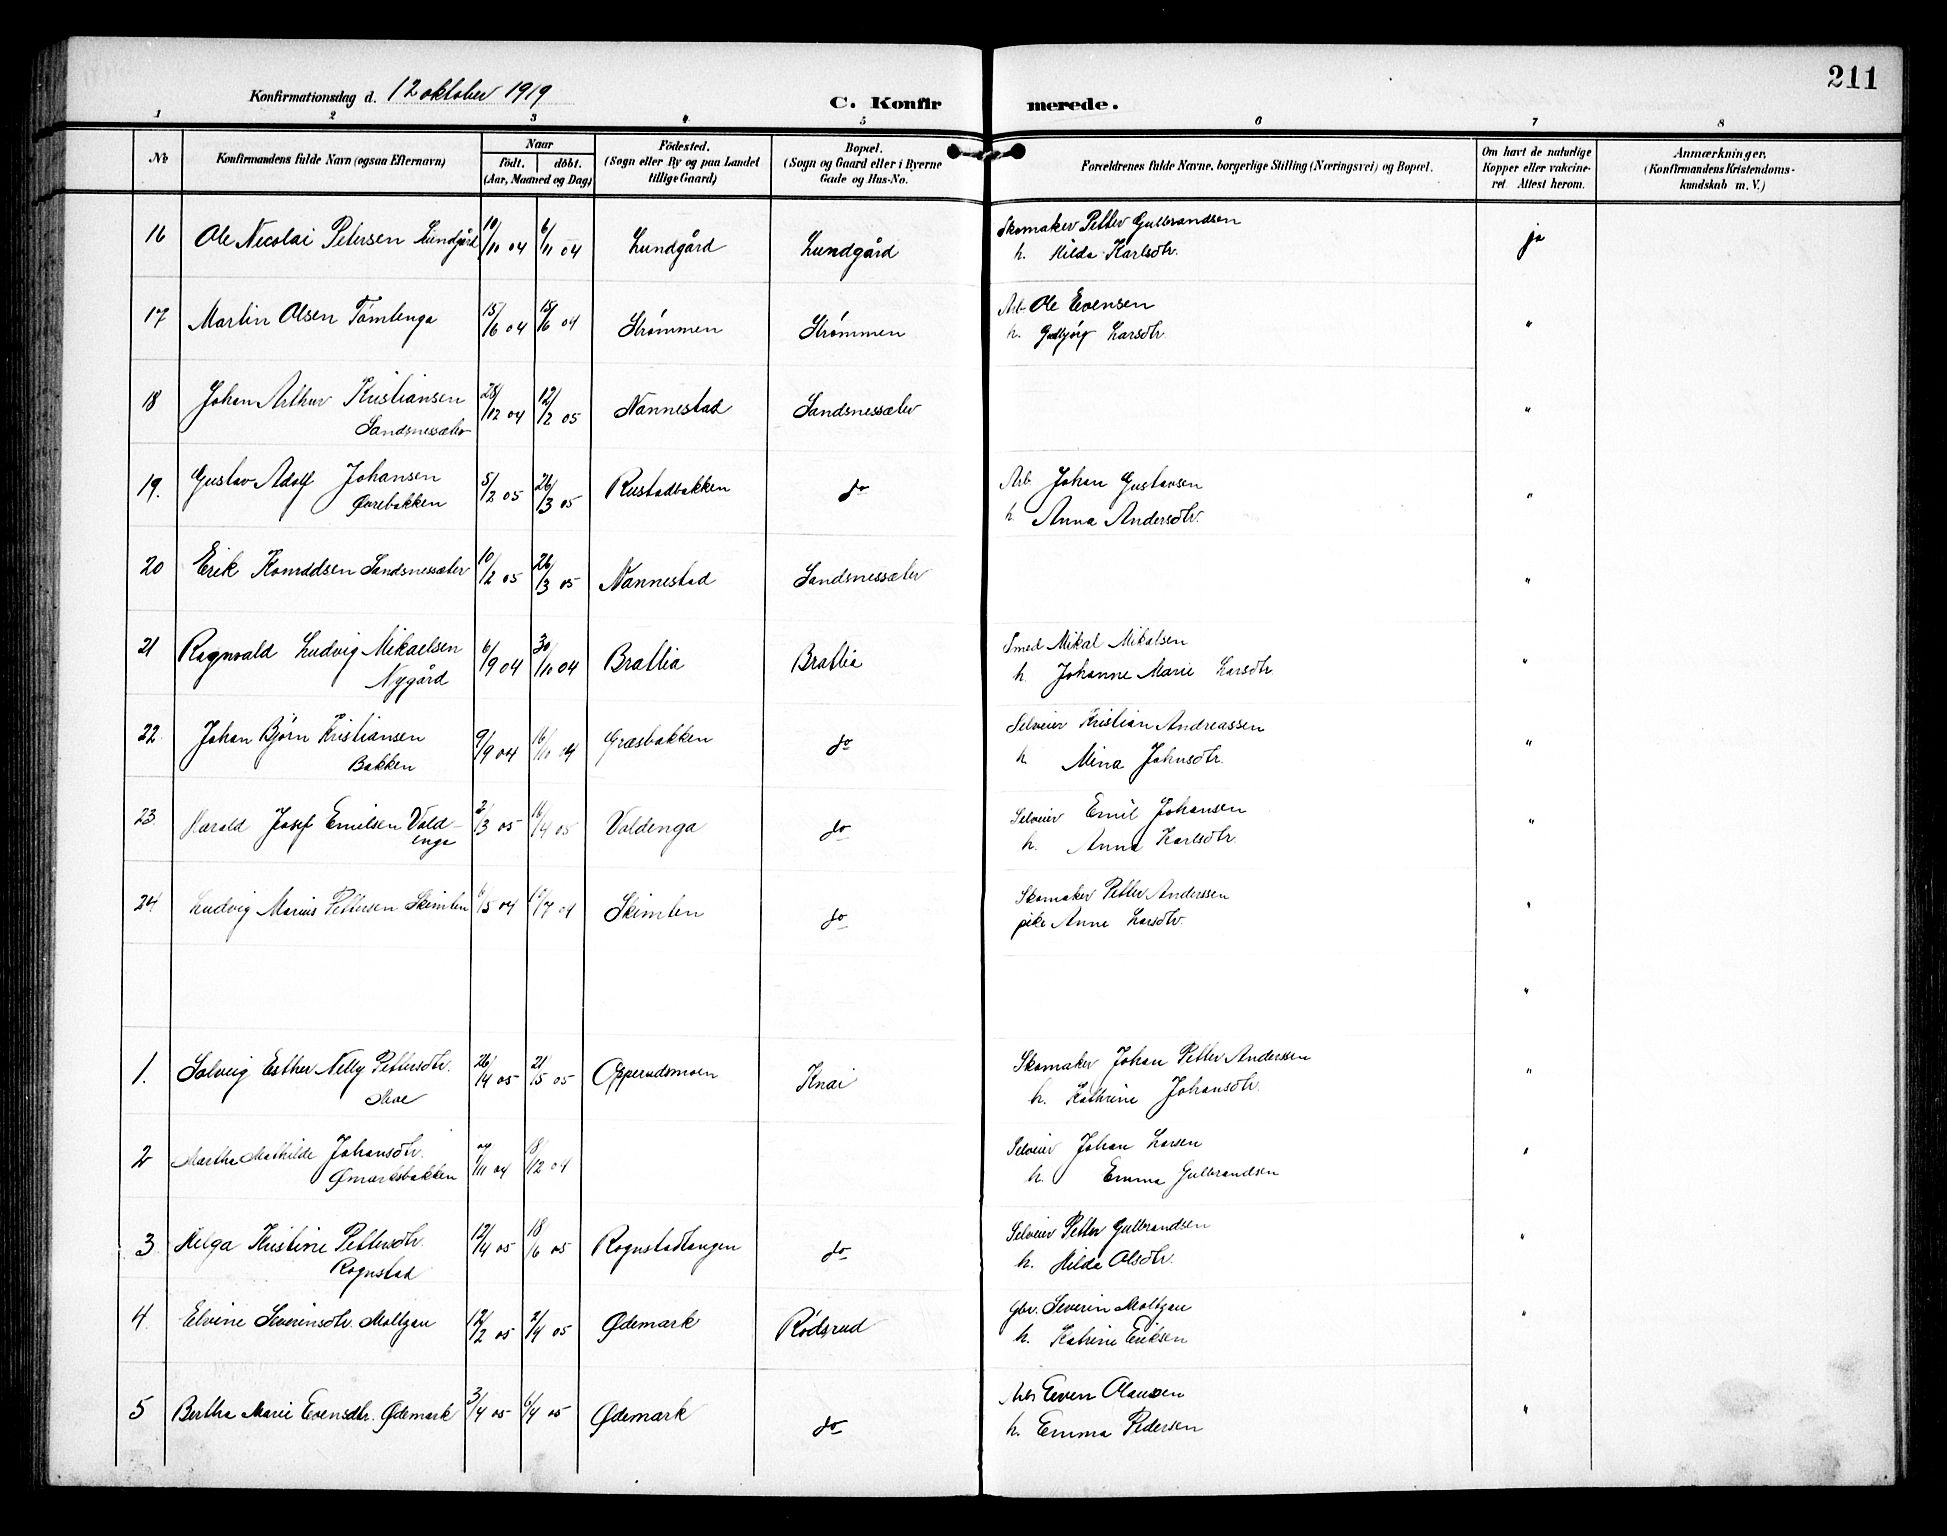 211
Konfirmationsdag d. 12 oktober 1919
C. Konfirmerede.
1 2 3 4 5 6 7 8
No
Konfirmandens fulde Navn (ogsaa Efternavn)
Naar
födt. döbt.
(Aar, Maaned og Dag)
Födested.
(Sogn eller By og paa Landet
tillige Gaard)
Bopæl.
(Sogn og Gaard eller i Byerne
Gade og Hus-No.
Forældrenes fulde Navne, borgerlige Stilling (Næringsvei) og Bopæl.
Om havt de naturlige
Kopper eller vakcine-
ret. Attest herom.
Anmærkninger.
(Konfirmandens Kristendoms-
kundskab m. V.)
16 Ole Nicolai Petersen Lundgård 10/10 04 6/11 04 Lundgård Lundgård Skomaker Petter Gulbrandsen ja
h. Hilda Karlsdtr.
17 Martin Olsen Tømtenga 15/6 04 Strømmen Strømmen Arb. Ole Evensen "
h. Gudbjørg Larsdtr.
18 Johan Arthur Kristiansen 28/12 04 12/2 05 Nannestad Sandsnessæter "
Sandsnessæter
19. Gustav Adolf Johansen 5/2 05 26/3 05 Rustadbakken do Arb. Johan Gustavsen "
Øvrebakken h. Anna Andersdtr.
20 Erik Konradsen Sandsnessæter 10/2 05 26/3 05 Nannestad Sandsnessæter "
21 Ragnvald Ludvig Mikaelsen 6/9 04 30/10 04 Bratlia Bratlia Smed Mikal Mikalsen "
Nygård h. Johanne Marie Larsdtr
22. Johan Bjørn Kristiansen 9/9 04 16/10 04 Græsbakken do Selveier Kristian Andreassen "
Bakken h. Mina Johnsdtr.
23 Harald Josef Emilsen Vold- 2/3 05 16/4 05 Voldenga do Selveier Emil Johansen "
enga h. Anna Karlsdtr.
24. Ludvig Marius Pettersen Skimten 6/5 04 Skimten do Skomaker Petter Anderssen "
pike Anne Larsdtr.
"
1. Solveig Esther Nelly Pettersdtr. 26/4 05 21/5 05 Opperudsmoen Knai Skomaker Johan Petter Anderssen "
Moe h. Kathrine Johansdtr.
2 Martha Mathilde Johansdtr. /11 04 18/12 04 Selveier Johan Larsen "
Ømarksbakken h. Emma Gulbrandsen
3 Helga Kristine Pettersdtr. 12/4 05 18/6 05 Rognstadtangen do Selveier Petter Gulbrandsen "
Rognstad h. Hilda Olsdtr.
4. Elvine Severinsdtr. Moltzau 12/2 05 2/4 05 Ødemark Rødsrud Gbr. Severin Moltzau "
h. Katrine Eriksen
5 Bertha Marie Evensdtr. Ødemark 3/4 05 6/4 05 Ødemark do Arb Even Olausen "
h. Emma Pedersen